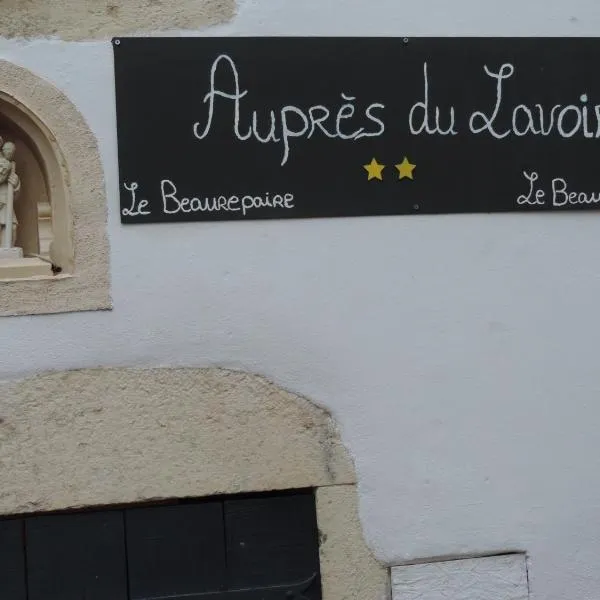 Auprès du Lavoir
Le Beaurepaire Le Beau